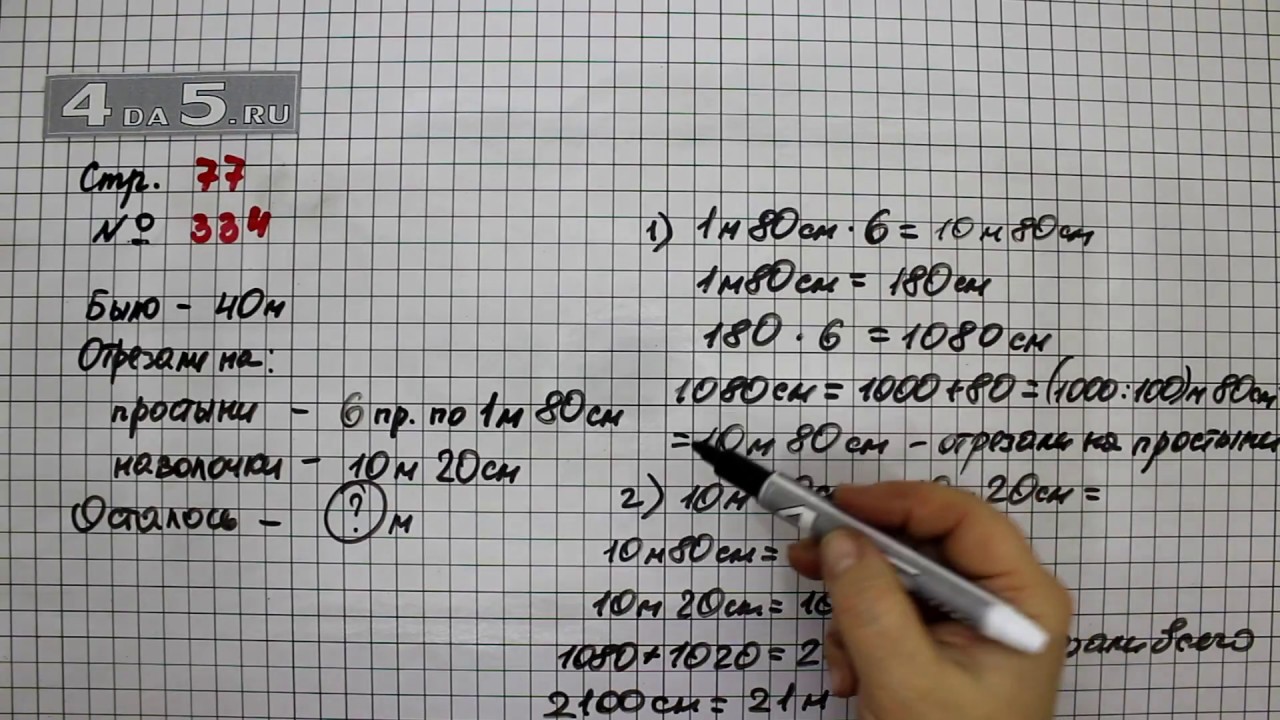 4 DA 5.RU
Стр. 77
№ 334
Было - 40м
Отрезали на:
простыни - 6 пр. по 1м 80см
наволочки - 10м 20см
Осталось - ? м
1) 1м 80см · 6 = 10м 80см
1м80см = 180см
180 · 6 = 1080см
1080см = 1000+80 = (1000:100)м 80см
= 10м 80см - отрезали на простыни
2) 10м 20см =
10м80см =
10м 20см =
1080+1020=2
всего
2100см = 21м